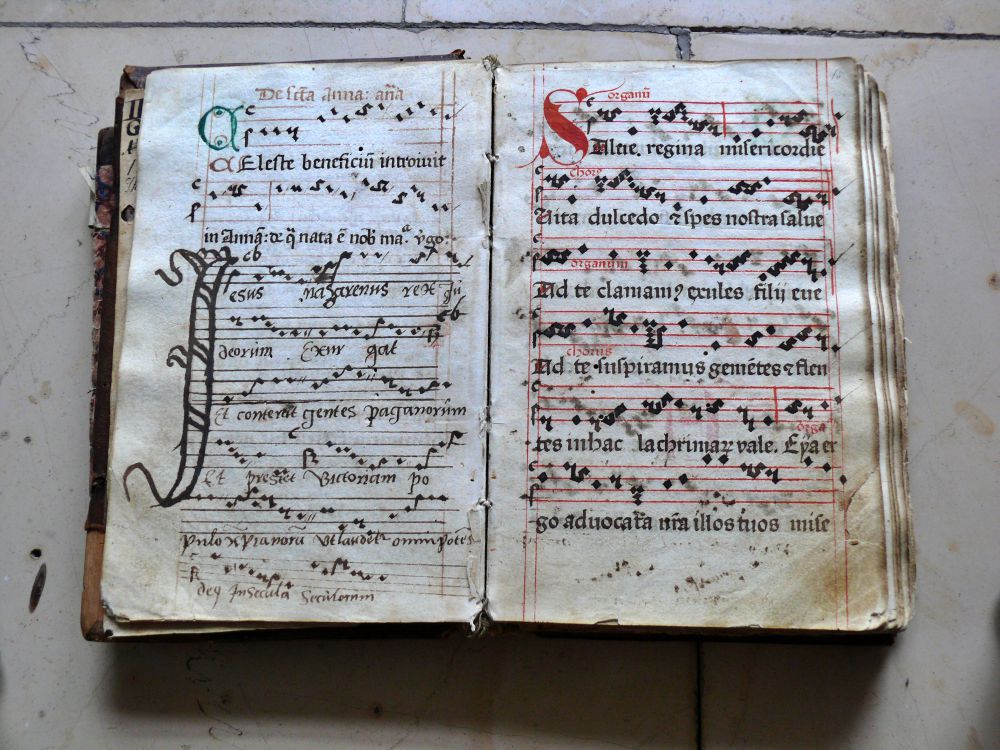 De sctā Anna: aña
CEleste beneficiū introiuit
in Annā: de q̄ nata ē nob̄ ma.ª v̄go.
Iesus nazarenus rex Iu
deorum Exur gat
Et conterat gentes paganorum
Et prestet Victoriam po
pulo xp̄ianorū Vt laudēt omnipotēs
In secula Seculorum
organū
SAlue. regina misericordie
chorꝰ
Vita dulcedo ⁊ spes nostra salue
organum
Ad te clamamꝰ exules filij eue
chorus
Ad te suspiramus gemētes ⁊ flen
orga
tes in hac lachrimaꝝ vale. Eya er
go aduocata nr̄a illos tuos mise